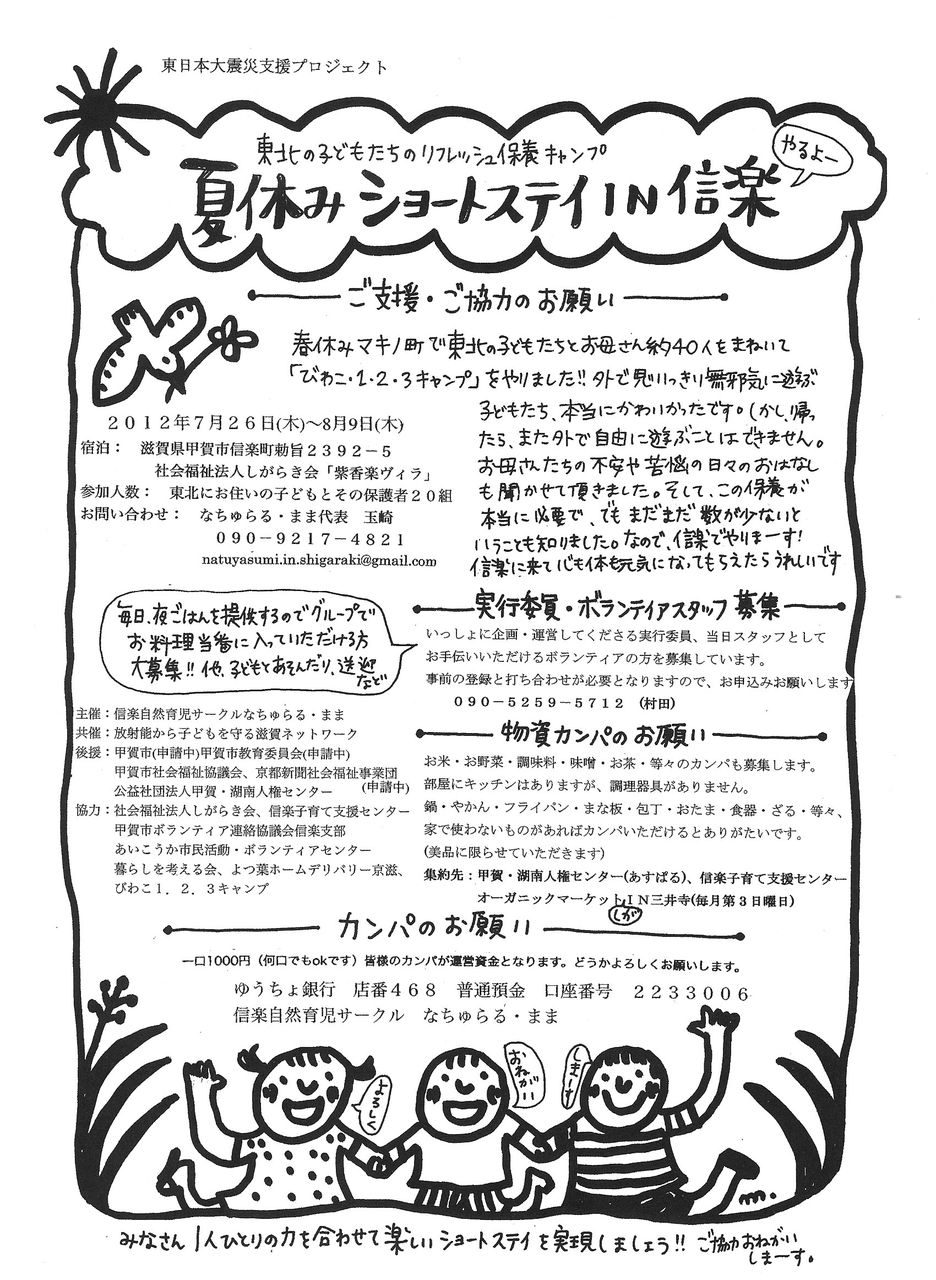 東日本大震災支援プロジェクト
東北の子どもたちのリフレッシュ保養キャンプ
やるよー
夏休みショートステイIN信楽
ご支援・ご協力のお願い
春休みマキノ町で東北の子どもたちとお母さん約40人をまねいて
「びわこ・1・2・3キャンプ」をやりました!! 外で思いっきり無邪気に遊ぶ
子どもたち、本当にかわいかったです。しかし、帰っ
たら、また外で自由に遊ぶことはできません。
お母さんたちの不安や苦悩の日々のおはなし
も聞かせて頂きました。そして、この保養が
本当に必要で、でもまだまだ数が少ないと
いうことも知りました。なので、信楽でやりまーす!
信楽に来て心も体も元気になってもらえたらうれしいです
2012年7月26日(木)～8月9日(木)
宿泊： 滋賀県甲賀市信楽町勅旨2392－5
社会福祉法人しがらき会「紫香楽ヴィラ」
参加人数： 東北にお住いの子どもとその保護者20組
お問い合わせ： なちゅらる・まま代表 玉崎
090－9217－4821
natuyasumi.in.shigaraki@gmail.com
毎日、夜ごはんを提供するのでグループで
お料理当番に入っていただける方
大募集!! 他、子どもとあそんだり、送迎
など
実行委員・ボランティアスタッフ募集
いっしょに企画・運営してくださる実行委員、当日スタッフとして
お手伝いいただけるボランティアの方を募集しています。
事前の登録と打ち合わせが必要となりますので、お申込みお願いします
090－5259－5712 (村田)
主催：信楽自然育児サークルなちゅらる・まま
共催：放射能から子どもを守る滋賀ネットワーク
後援：甲賀市(申請中)甲賀市教育委員会(申請中)
甲賀市社会福祉協議会、京都新聞社会福祉事業団
公益社団法人甲賀・湖南人権センター (申請中)
協力：社会福祉法人しがらき会、信楽子育て支援センター
甲賀市ボランティア連絡協議会信楽支部
あいこうか市民活動・ボランティアセンター
暮らしを考える会、よつ葉ホームデリバリー京滋、
びわこ1．2．3キャンプ
物資カンパのお願い
お米・お野菜・調味料・味噌・お茶・等々のカンパも募集します。
部屋にキッチンはありますが、調理器具がありません。
鍋・やかん・フライパン・まな板・包丁・おたま・食器・ざる・等々、
家で使わないものがあればカンパいただけるとありがたいです。
(美品に限らせていただきます)
集約先：甲賀・湖南人権センター(あすぱる)、信楽子育て支援センター
オーガニックマーケットIN三井寺(毎月第3日曜日)
しが
カンパのお願い
一口1000円（何口でもokです）皆様のカンパが運営資金となります。どうかよろしくお願いします。
ゆうちょ銀行 店番468 普通預金 口座番号 2233006
信楽自然育児サークル なちゅらる・まま
よろしく
おねがい
しまーす
みなさん1人ひとりの力を合わせて楽しいショートステイを実現しましょう!! ご協力おねがい
しまーす。